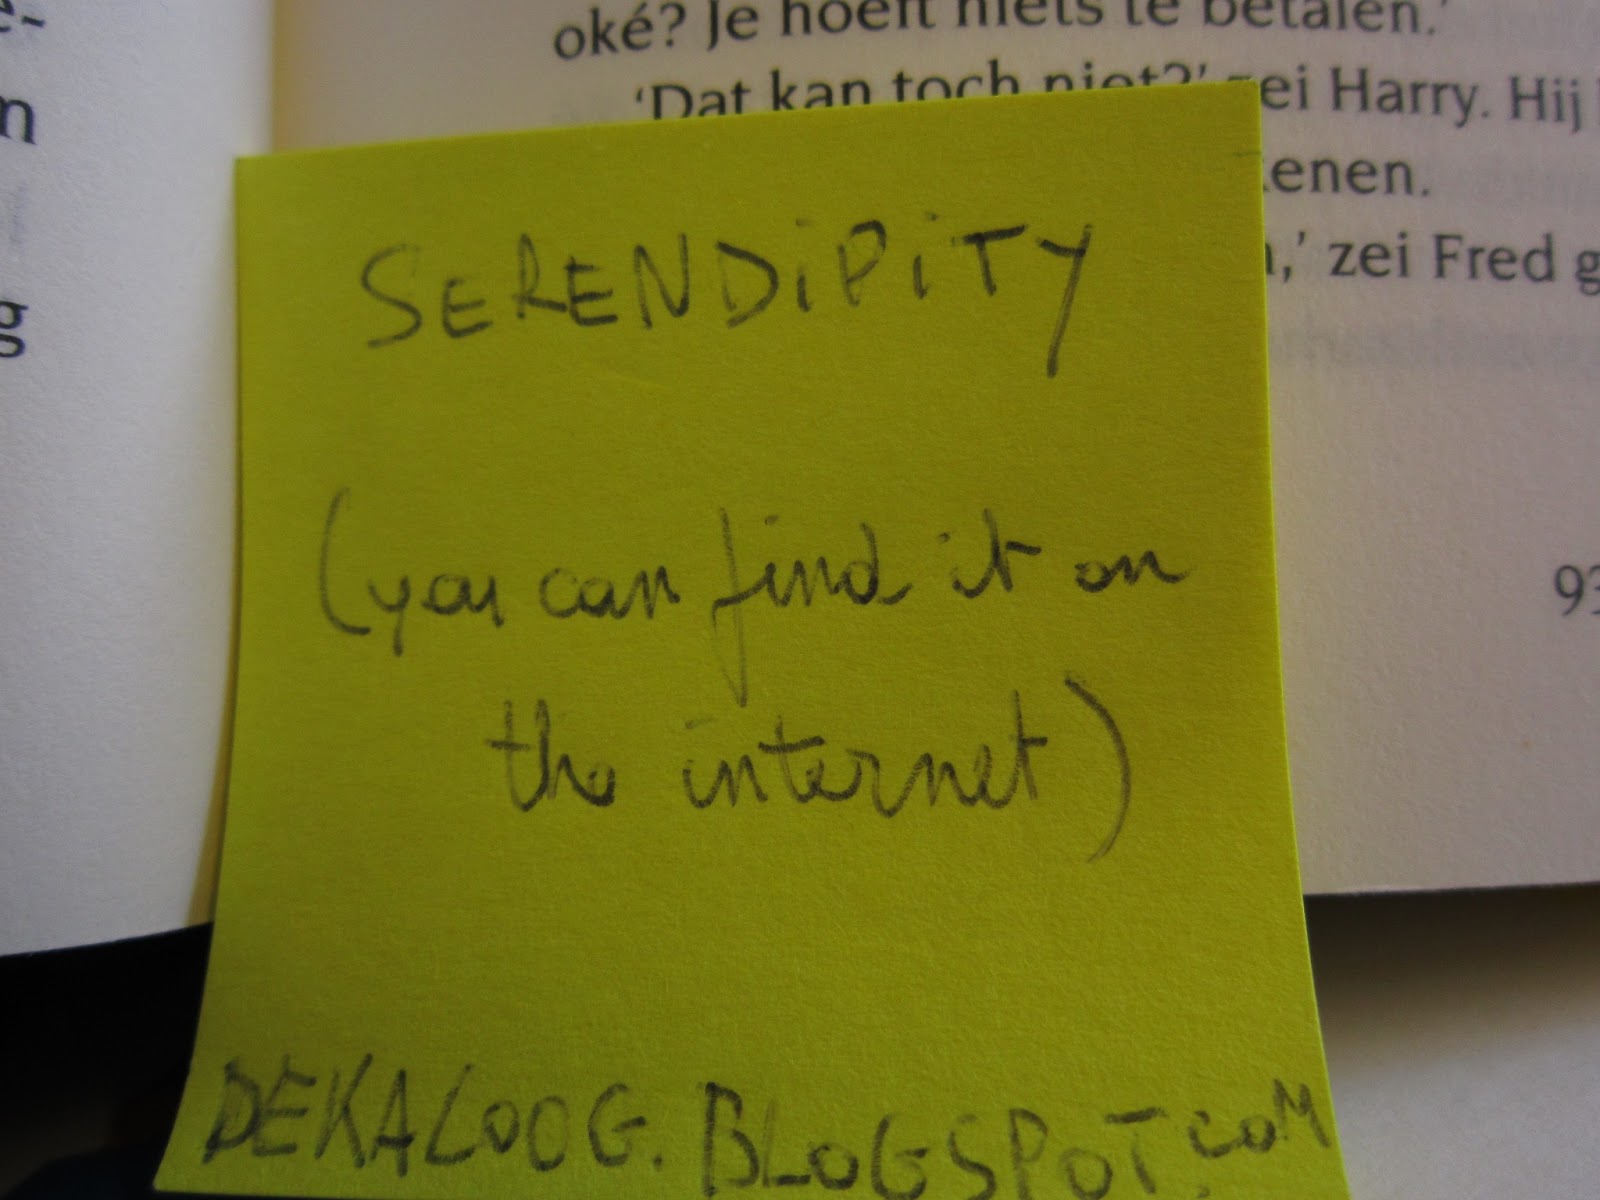 e-
n
g
oké? Je hoeft niets te betalen.'
'Dat kan toch niet?' zei Harry. Hij
kenen.
,' zei Fred g
93
SERENDiPiTY
(you can find it on
the internet)
DEKALOOG.BLOGSPOT.COM